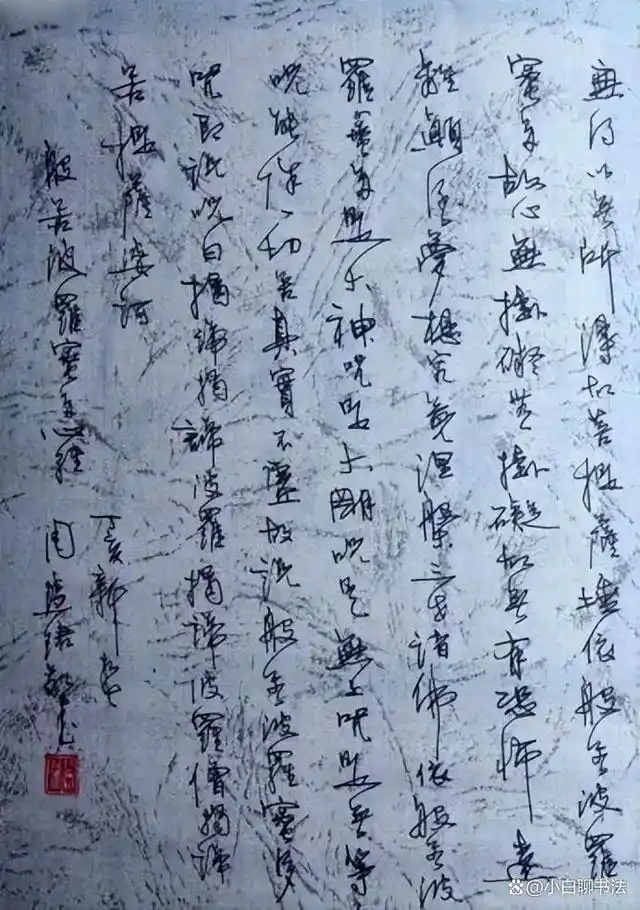 無得以無所得故菩提薩埵依般若波羅
蜜多故心無掛礙無掛礙故無有恐怖遠
離顛倒夢想究竟涅槃三世諸佛依般若波
羅蜜多是大神呪是大明呪是無上呪是無等
呪能除一切苦真實不虛故說般若波羅蜜多
呪即說呪曰揭諦揭諦波羅揭諦波羅僧揭諦
菩提薩婆訶
般若波羅蜜多心經
丁亥新春
周慧珺敬书
@小白聊书法